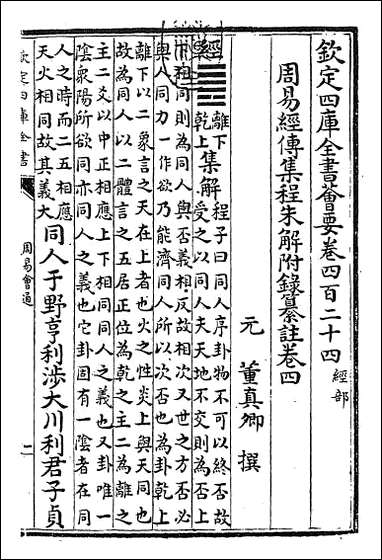 欽定四庫全書薈要卷四百二十四 經部
周易經傳集程朱解附錄纂註卷四
元 董真卿 撰
經 ䷌ 離下
乾上 集解 程子曰同人序卦物不可以終否故
受之以同人夫天地不交則為否上
下相同則為同人與否義相反故相次又世之方否必
與人同力一作欲乃能濟同人所以次否也為卦乾上
離下以二象言之天在上者也火之性炎上與天同也
故為同人以二體言之五居正位為乾之主二為離之
主二爻以中正相應上下相同同人之義也又卦唯一
陰衆陽所欲同亦同人之義也它卦固有一陰者在同
人之時而二五相應
天火相同故其義大 同人于野亨利涉大川利君子貞
欽定四庫全書
周易會通